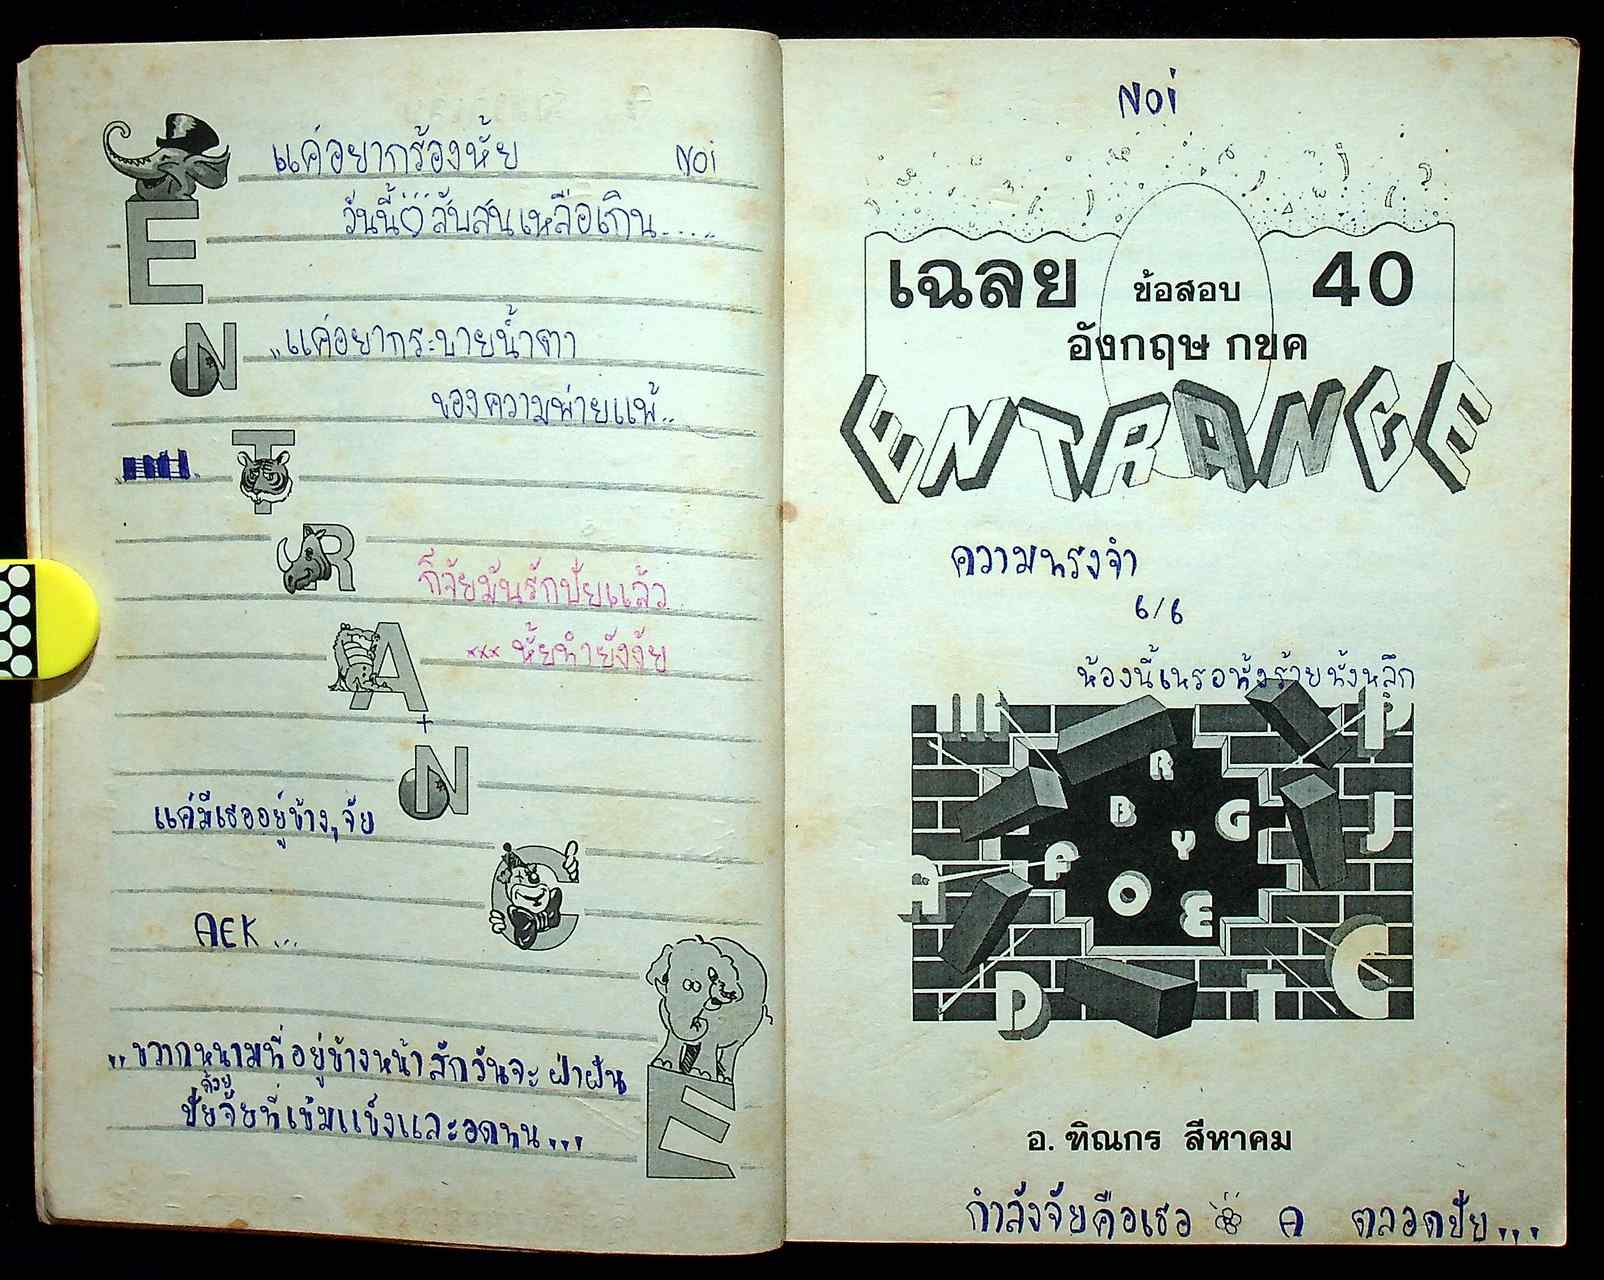 แค่อยากร้องหั้ย Noi
วันนี้ สับสนเหลือเกิน.....
E
N
"แค่อยากระบายน้ำตา
ของความพ่ายแพ้..
T
R
ก็จัยมันรักปัยแล้ว
××× หั้ยทำยังงัย
A
N
แค่มีเธออยู่ข้าง,จัย
C
AEK...
"ขวากหนามที่อยู่ข้างหน้าสักวันจะฝ่าฟัน
ปัยด้วยจัยที่เข้มแข็งและอดทน...
E
Noi
เฉลย ข้อสอบ 40
อังกฤษ กขค
ENTRANCE
ความทรงจำ
6/6
ห้องนี้เหรอทั้งร้ายทั้งหลึก
P
R
B
G
Y
J
F
O
E
R
D
T
C
อ. ทิณกร สีหาคม
กำลังจัยคือเธอ A ตลอดปัย...